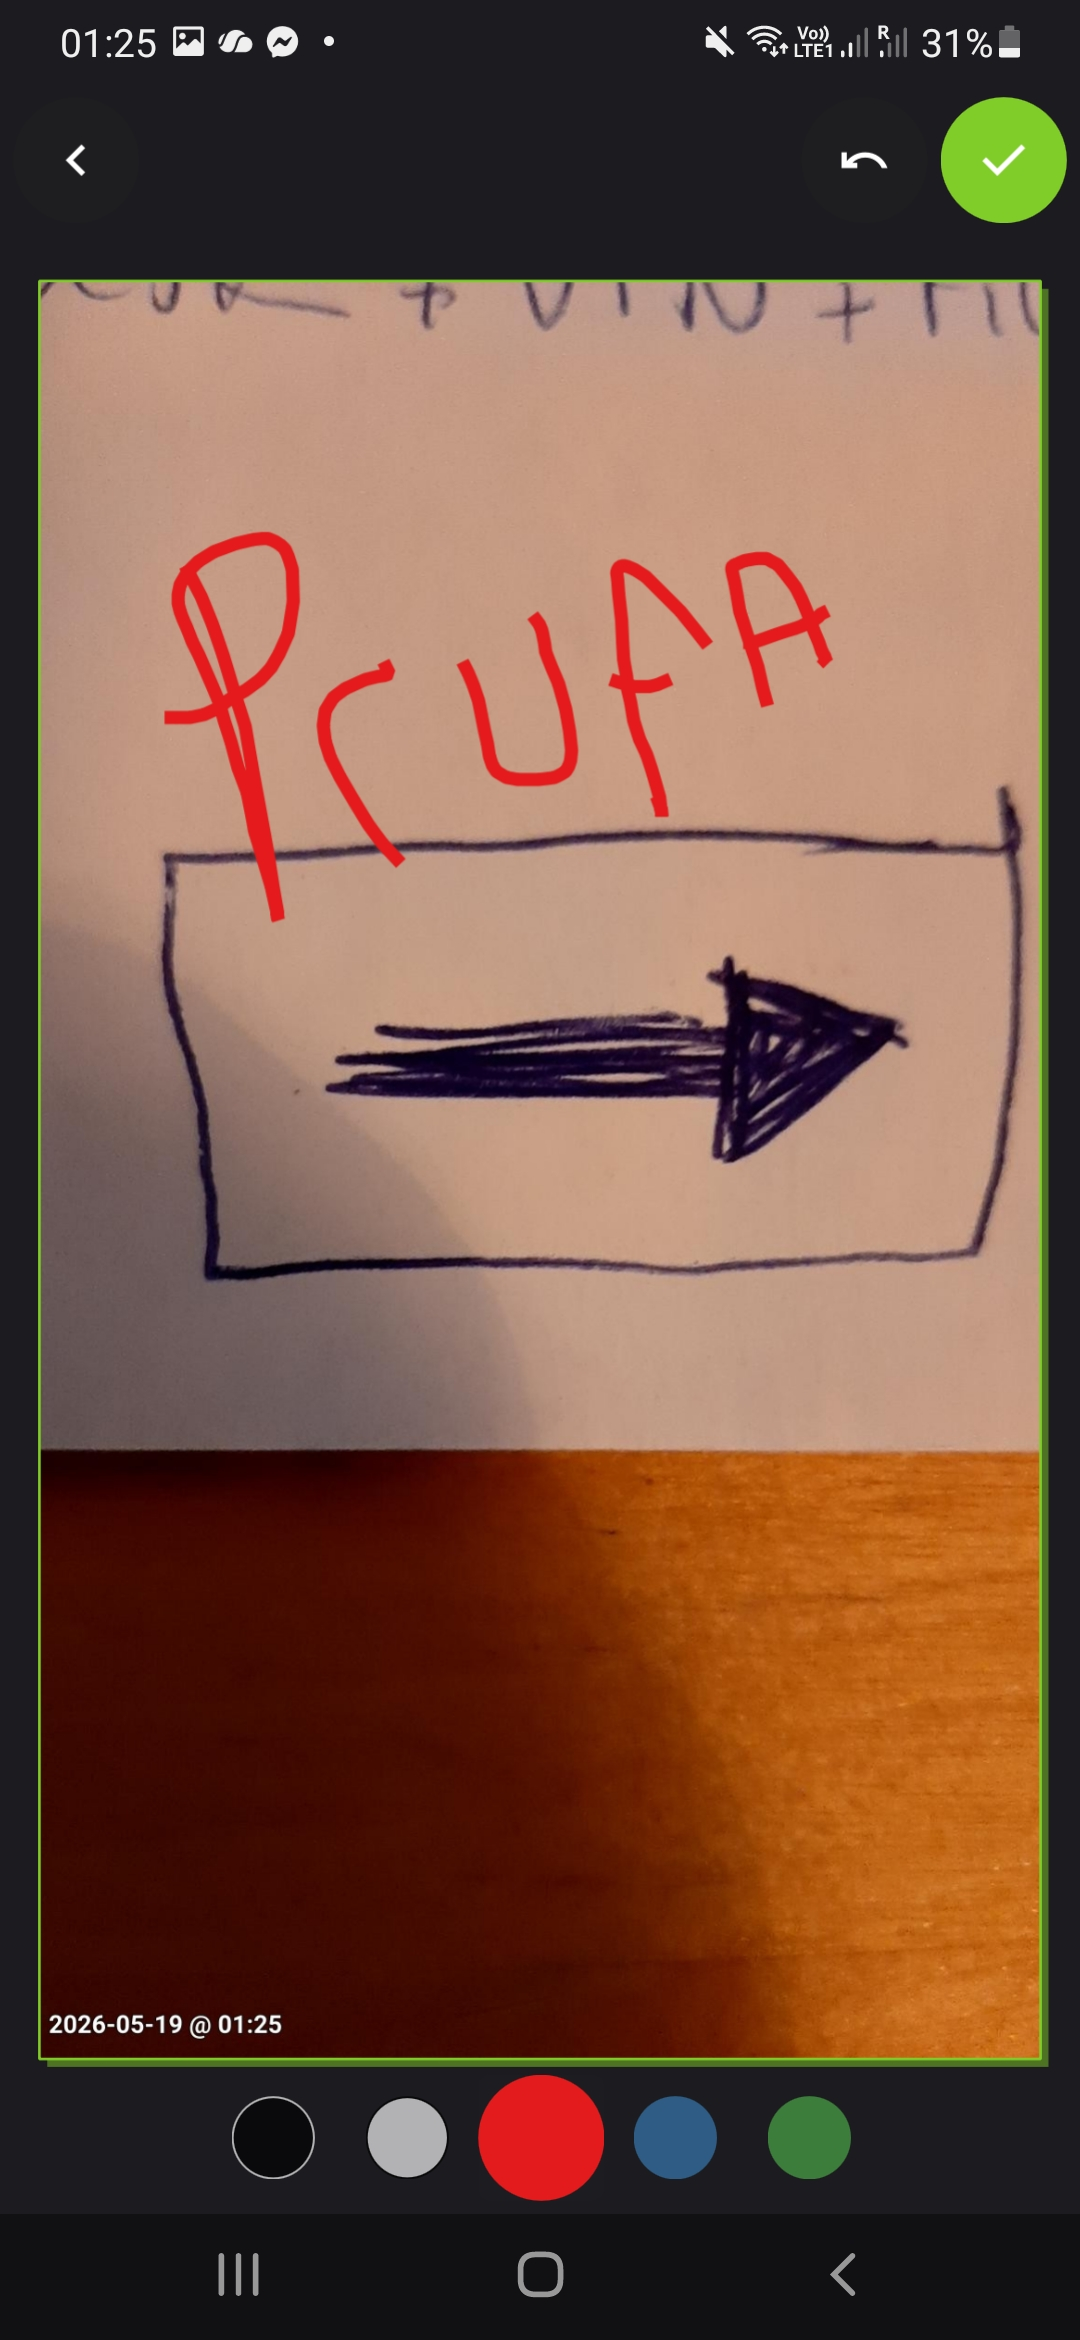 01:25
Vo)) LTE1 R 31%
+ VIN +
PrUfA
2026-05-19 @ 01:25